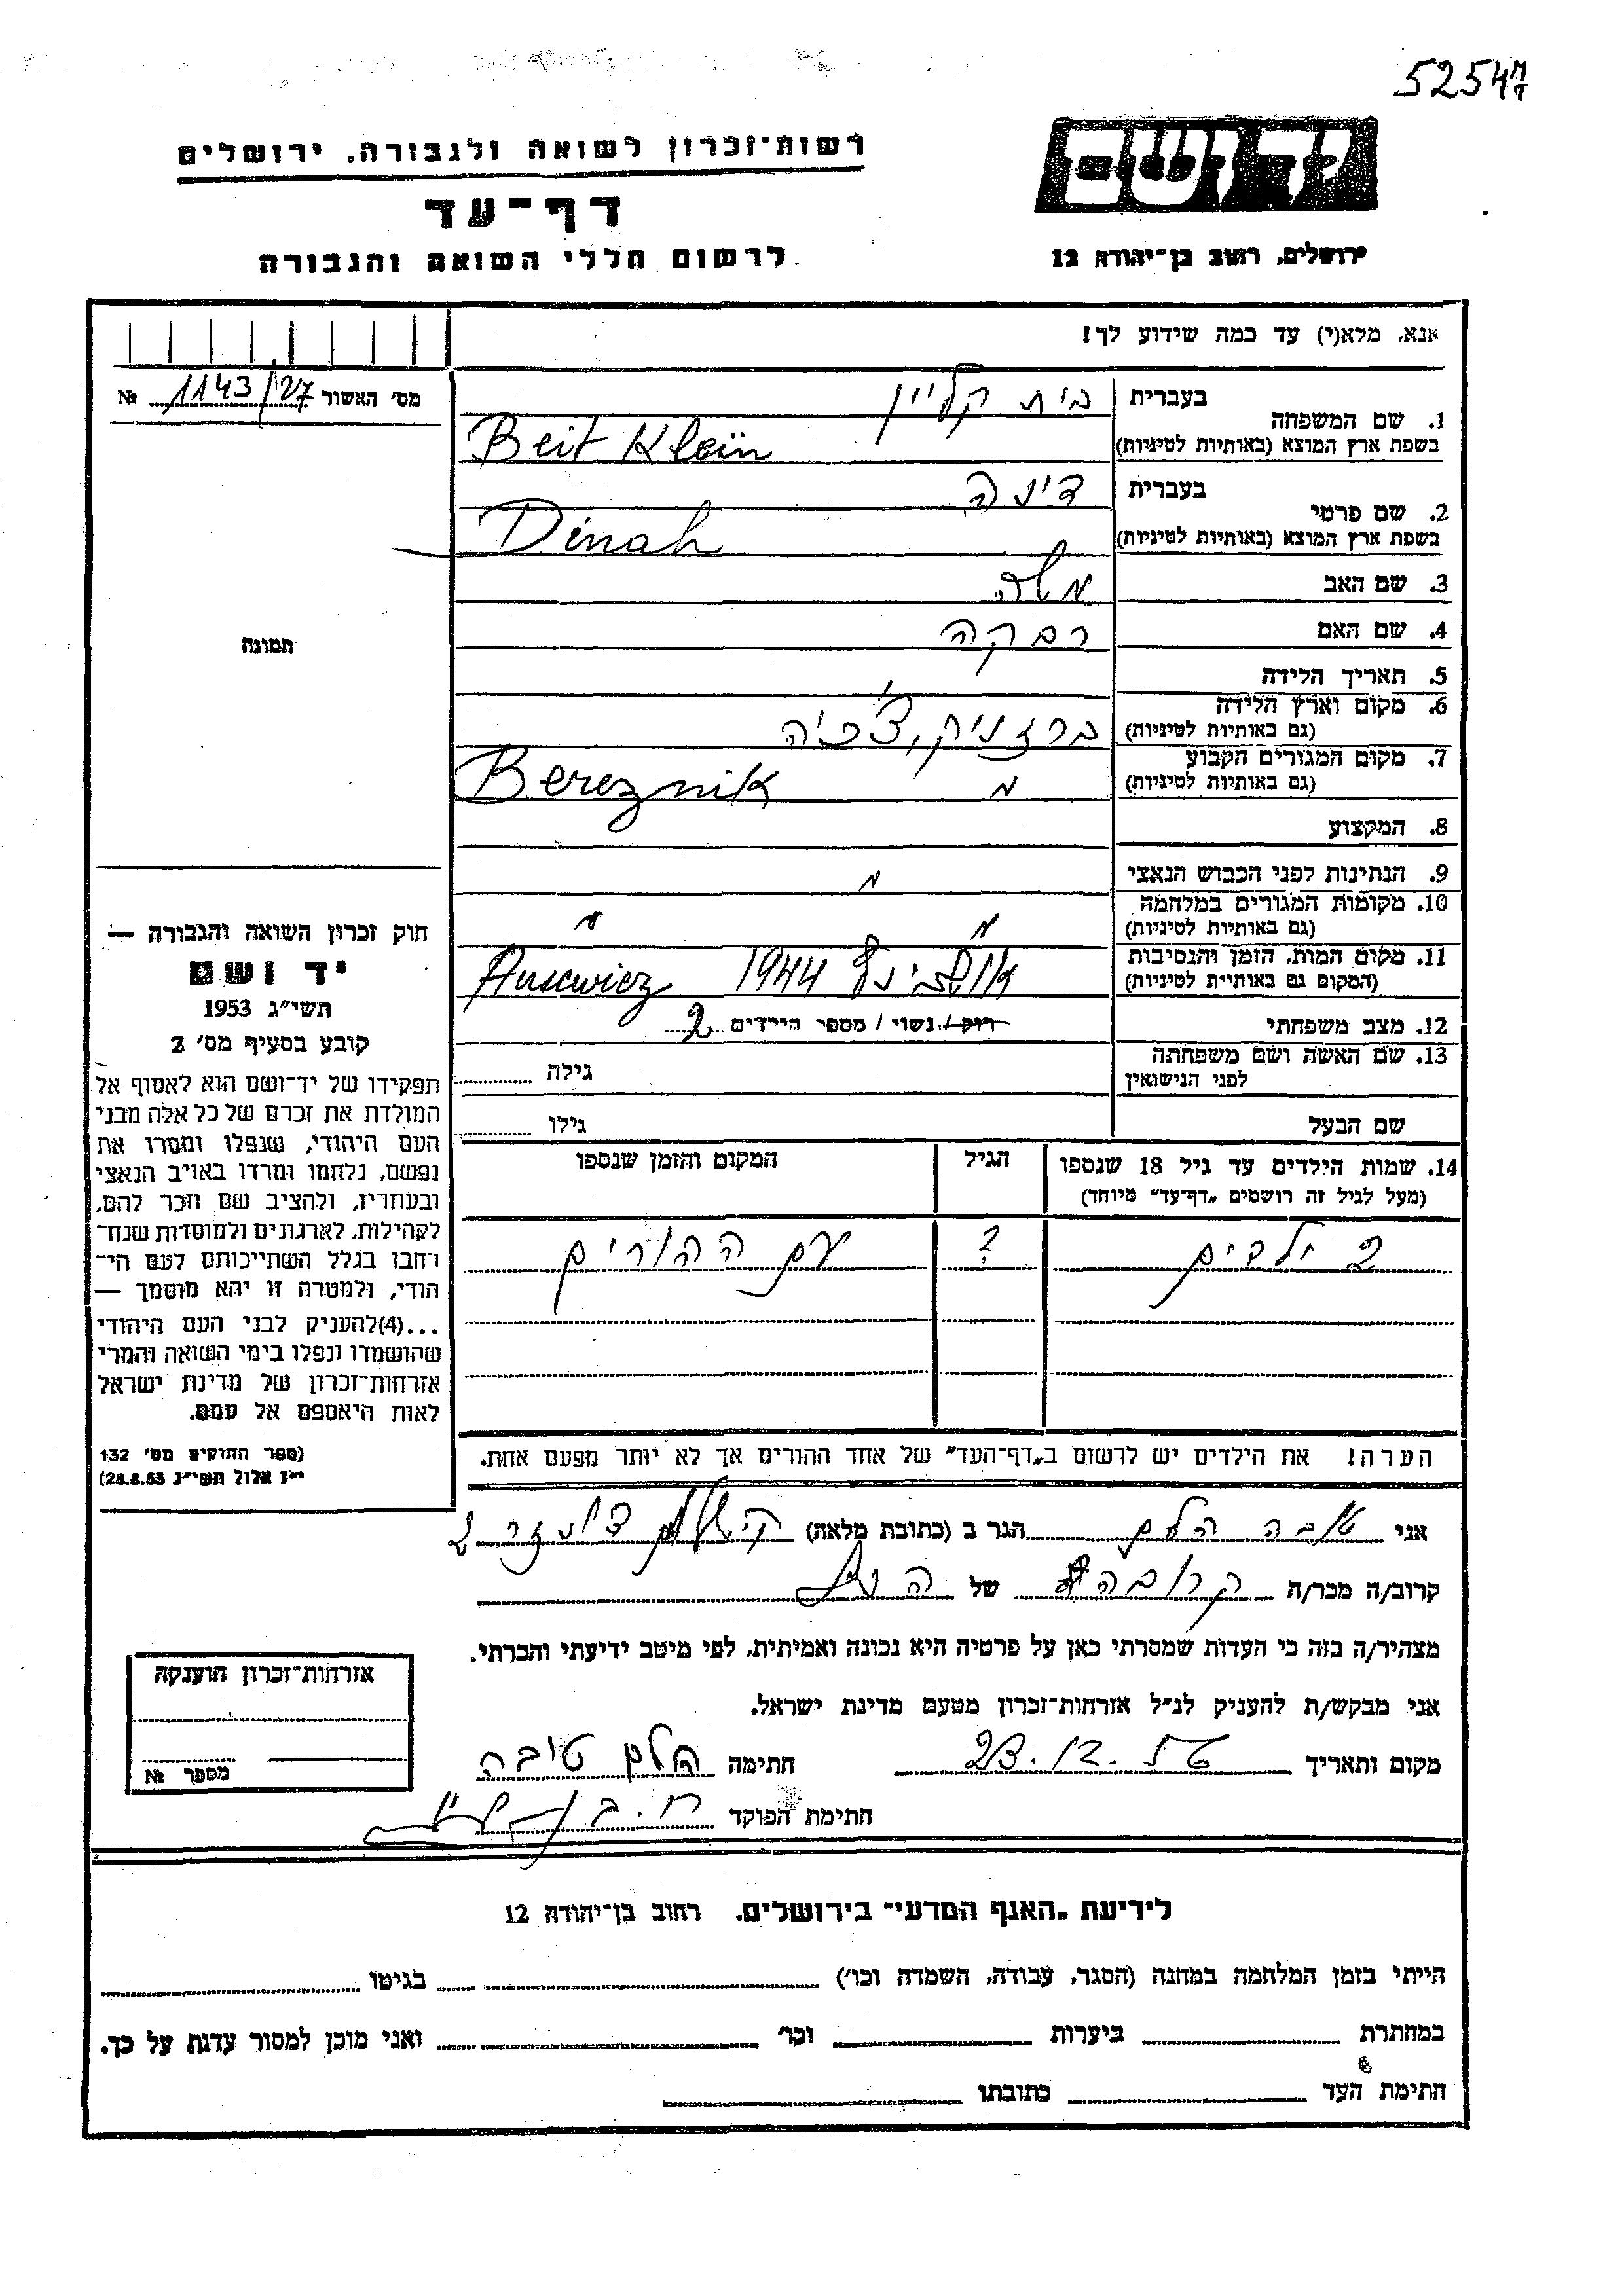 52547
רשות־זכרון לשואה ולגבורה, ירושלים
דף־עד
לרשום חללי השואה והגבורה
יד ושם
ירושלים, רחוב בן־יהודה 12
אנא, מלא(י) עד כמה שידוע לך!
מס׳ האשור № 1143/27
1. שם המשפחה בעברית בית קליין
בשפת ארץ המוצא (באותיות לטיניות) Beit Klein
2. שם פרטי בעברית דינה
בשפת ארץ המוצא (באותיות לטיניות) Dinah
3. שם האב משה
4. שם האם רבקה
5. תאריך הלידה
6. מקום וארץ הלידה
(גם באותיות לטיניות) ברזניק, צ׳כיה
7. מקום המגורים הקבוע
(גם באותיות לטיניות) Bereznik
8. המקצוע
9. הנתינות לפני הכבוש הנאצי
10. מקומות המגורים במלחמה
(גם באותיות לטיניות)
11. מקום המות, הזמן והנסיבות
(המקום גם באותיות לטיניות) 1944 Auscwiez
12. מצב משפחתי רוק/נשוי/מספר הילדים 2
13. שם האשה ושם משפחתה
לפני הנישואין גילה
שם הבעל גילו
תמונה
חוק זכרון השואה והגבורה —
יד ושם
תשי״ג 1953
קובע בסעיף מס׳ 2
תפקידו של יד־ושם הוא לאסוף אל
המולדת את זכרם של כל אלה מבני
העם היהודי, שנפלו ומסרו את
נפשם, נלחמו ומרדו באויב הנאצי
ובעוזריו, ולהציב שם וזכר להם,
לקהילות, לארגונים ולמוסדות שנח־
רבו בגלל השתייכותם לעם הי־
הודי, ולמטרה זו יהא מוסמך —
...(4)להעניק לבני העם היהודי
שהושמדו ונפלו בימי השואה והמרי
אזרחות־זכרון של מדינת ישראל
לאות היאספם אל עמם.
(ספר החוקים מס׳ 132
י״ז אלול תשי״ג 28.8.53)
14. שמות הילדים עד גיל 18 שנספו
(מעל לגיל זה רושמים „דף־עד״ מיוחד)
הגיל
המקום והזמן שנספו
2 ילדים ? עם ההורים
הערה! את הילדים יש לרשום ב„דף־העד״ של אחד ההורים אך לא יותר מפעם אחת.
אני טובה הלם הגר ב (כתובת מלאה)
קרוב/ה מכר/ה קרובה של הנ״ל
מצהיר/ה בזה כי העדות שמסרתי כאן על פרטיה היא נכונה ואמיתית, לפי מיטב ידיעתי והכרתי.
אני מבקש/ת להעניק לנ״ל אזרחות־זכרון מטעם מדינת ישראל.
מקום ותאריך 23.12.56 חתימה הלם טובה
חתימת הפוקד
אזרחות־זכרון הוענקה
מספר №
לידיעת „האגף המדעי״ בירושלים. רחוב בן־יהודה 12
הייתי בזמן המלחמה במחנה (הסגר, עבודה, השמדה וכו׳) בגיטו
במחתרת ביערות וכו׳ ואני מוכן למסור עדות על כך.
חתימת העד כתובתו